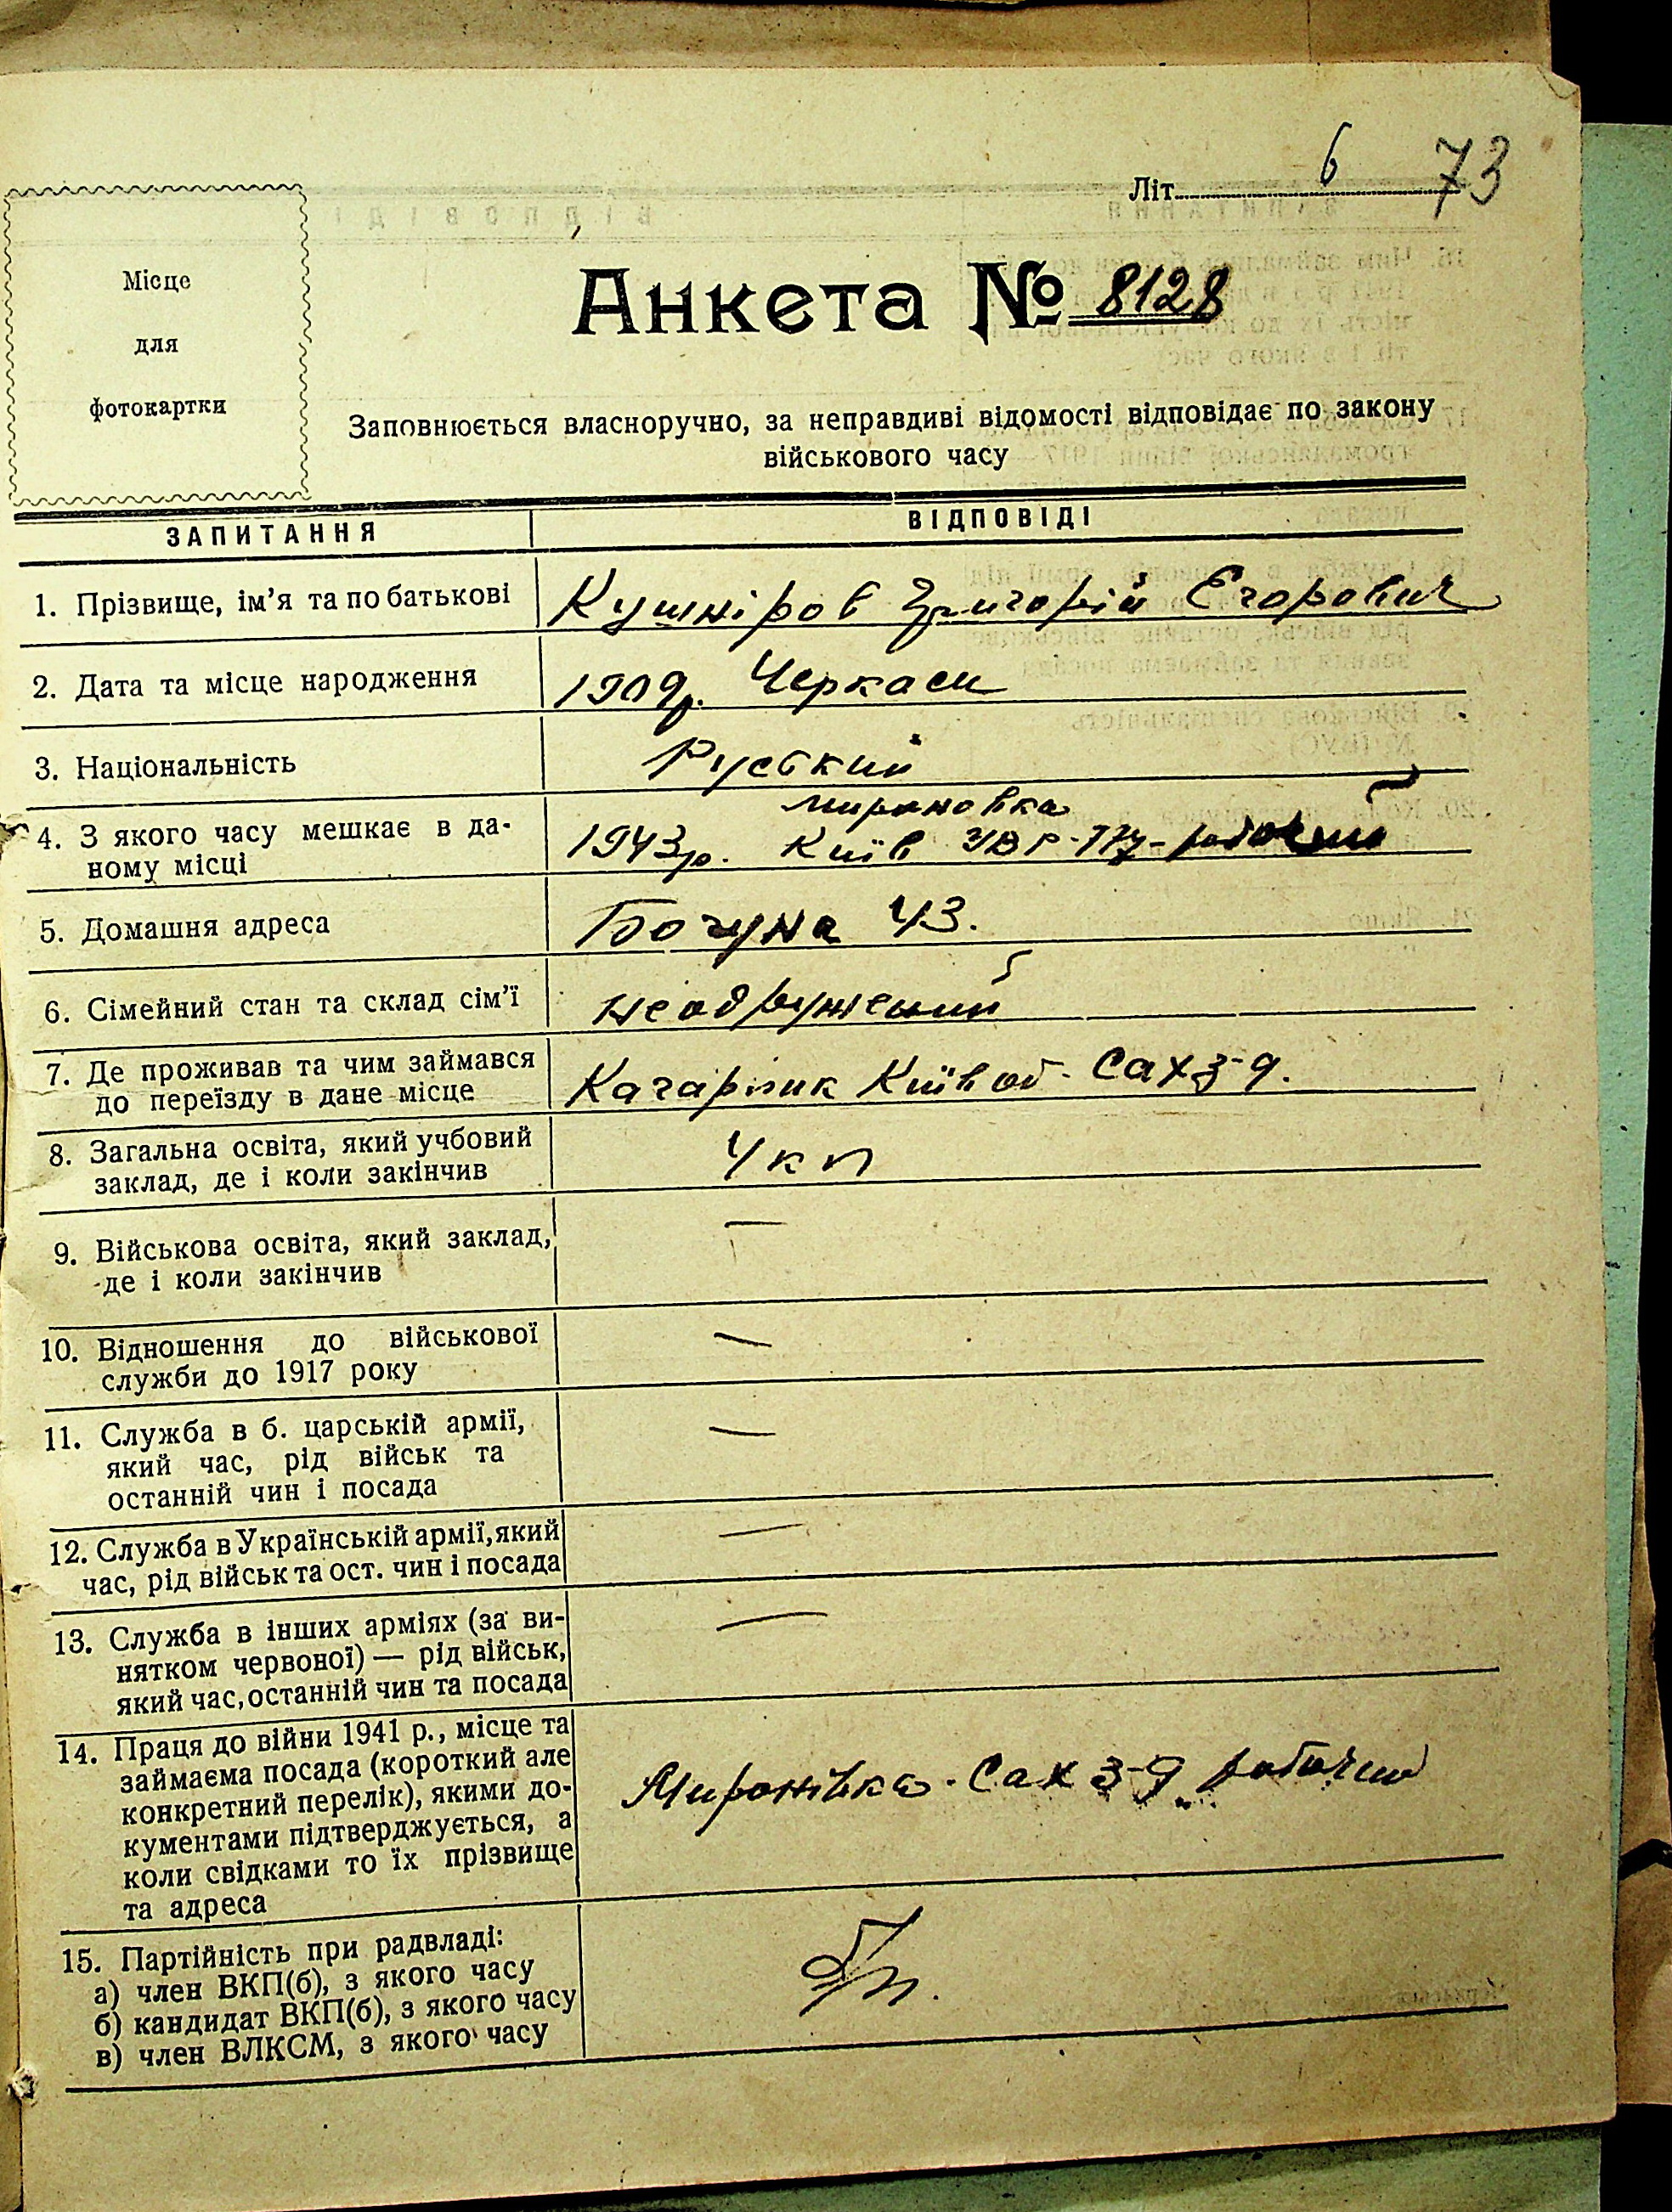 73
Літ. 6
Місце
для
фотокартки
Анкета № 8128
Заповнюється власноручно, за неправдиві відомості відповідає по закону
військового часу
ЗАПИТАННЯ ВІДПОВІДІ
1. Прізвище, ім'я та по батькові Кушніров Григорій Егорович
2. Дата та місце народження 1909р. Черкаси
3. Національність Руський
мироновка
4. З якого часу мешкає в да- 1943р. Київ робочий
ному місці
5. Домашня адреса Богуна 43.
6. Сімейний стан та склад сім'ї неодружений
7. Де проживав та чим займався Кагарлик Київ об. Сах з-д.
до переїзду в дане місце
8. Загальна освіта, який учбовий 4 кл
заклад, де і коли закінчив
9. Військова освіта, який заклад, —
де і коли закінчив
10. Відношення до військової —
служби до 1917 року
11. Служба в б. царській армії, —
який час, рід військ та
останній чин і посада
12. Служба в Українській армії, який —
час, рід військ та ост. чин і посада
13. Служба в інших арміях (за ви- —
нятком червоної) — рід військ,
який час, останній чин та посада
14. Праця до війни 1941 р., місце та
займаєма посада (короткий але Миронівка. Сах з-д робочий
конкретний перелік), якими до-
кументами підтверджується, а
коли свідками то їх прізвище
та адреса
15. Партійність при радвладі:
а) член ВКП(б), з якого часу Б/п.
б) кандидат ВКП(б), з якого часу
в) член ВЛКСМ, з якого часу